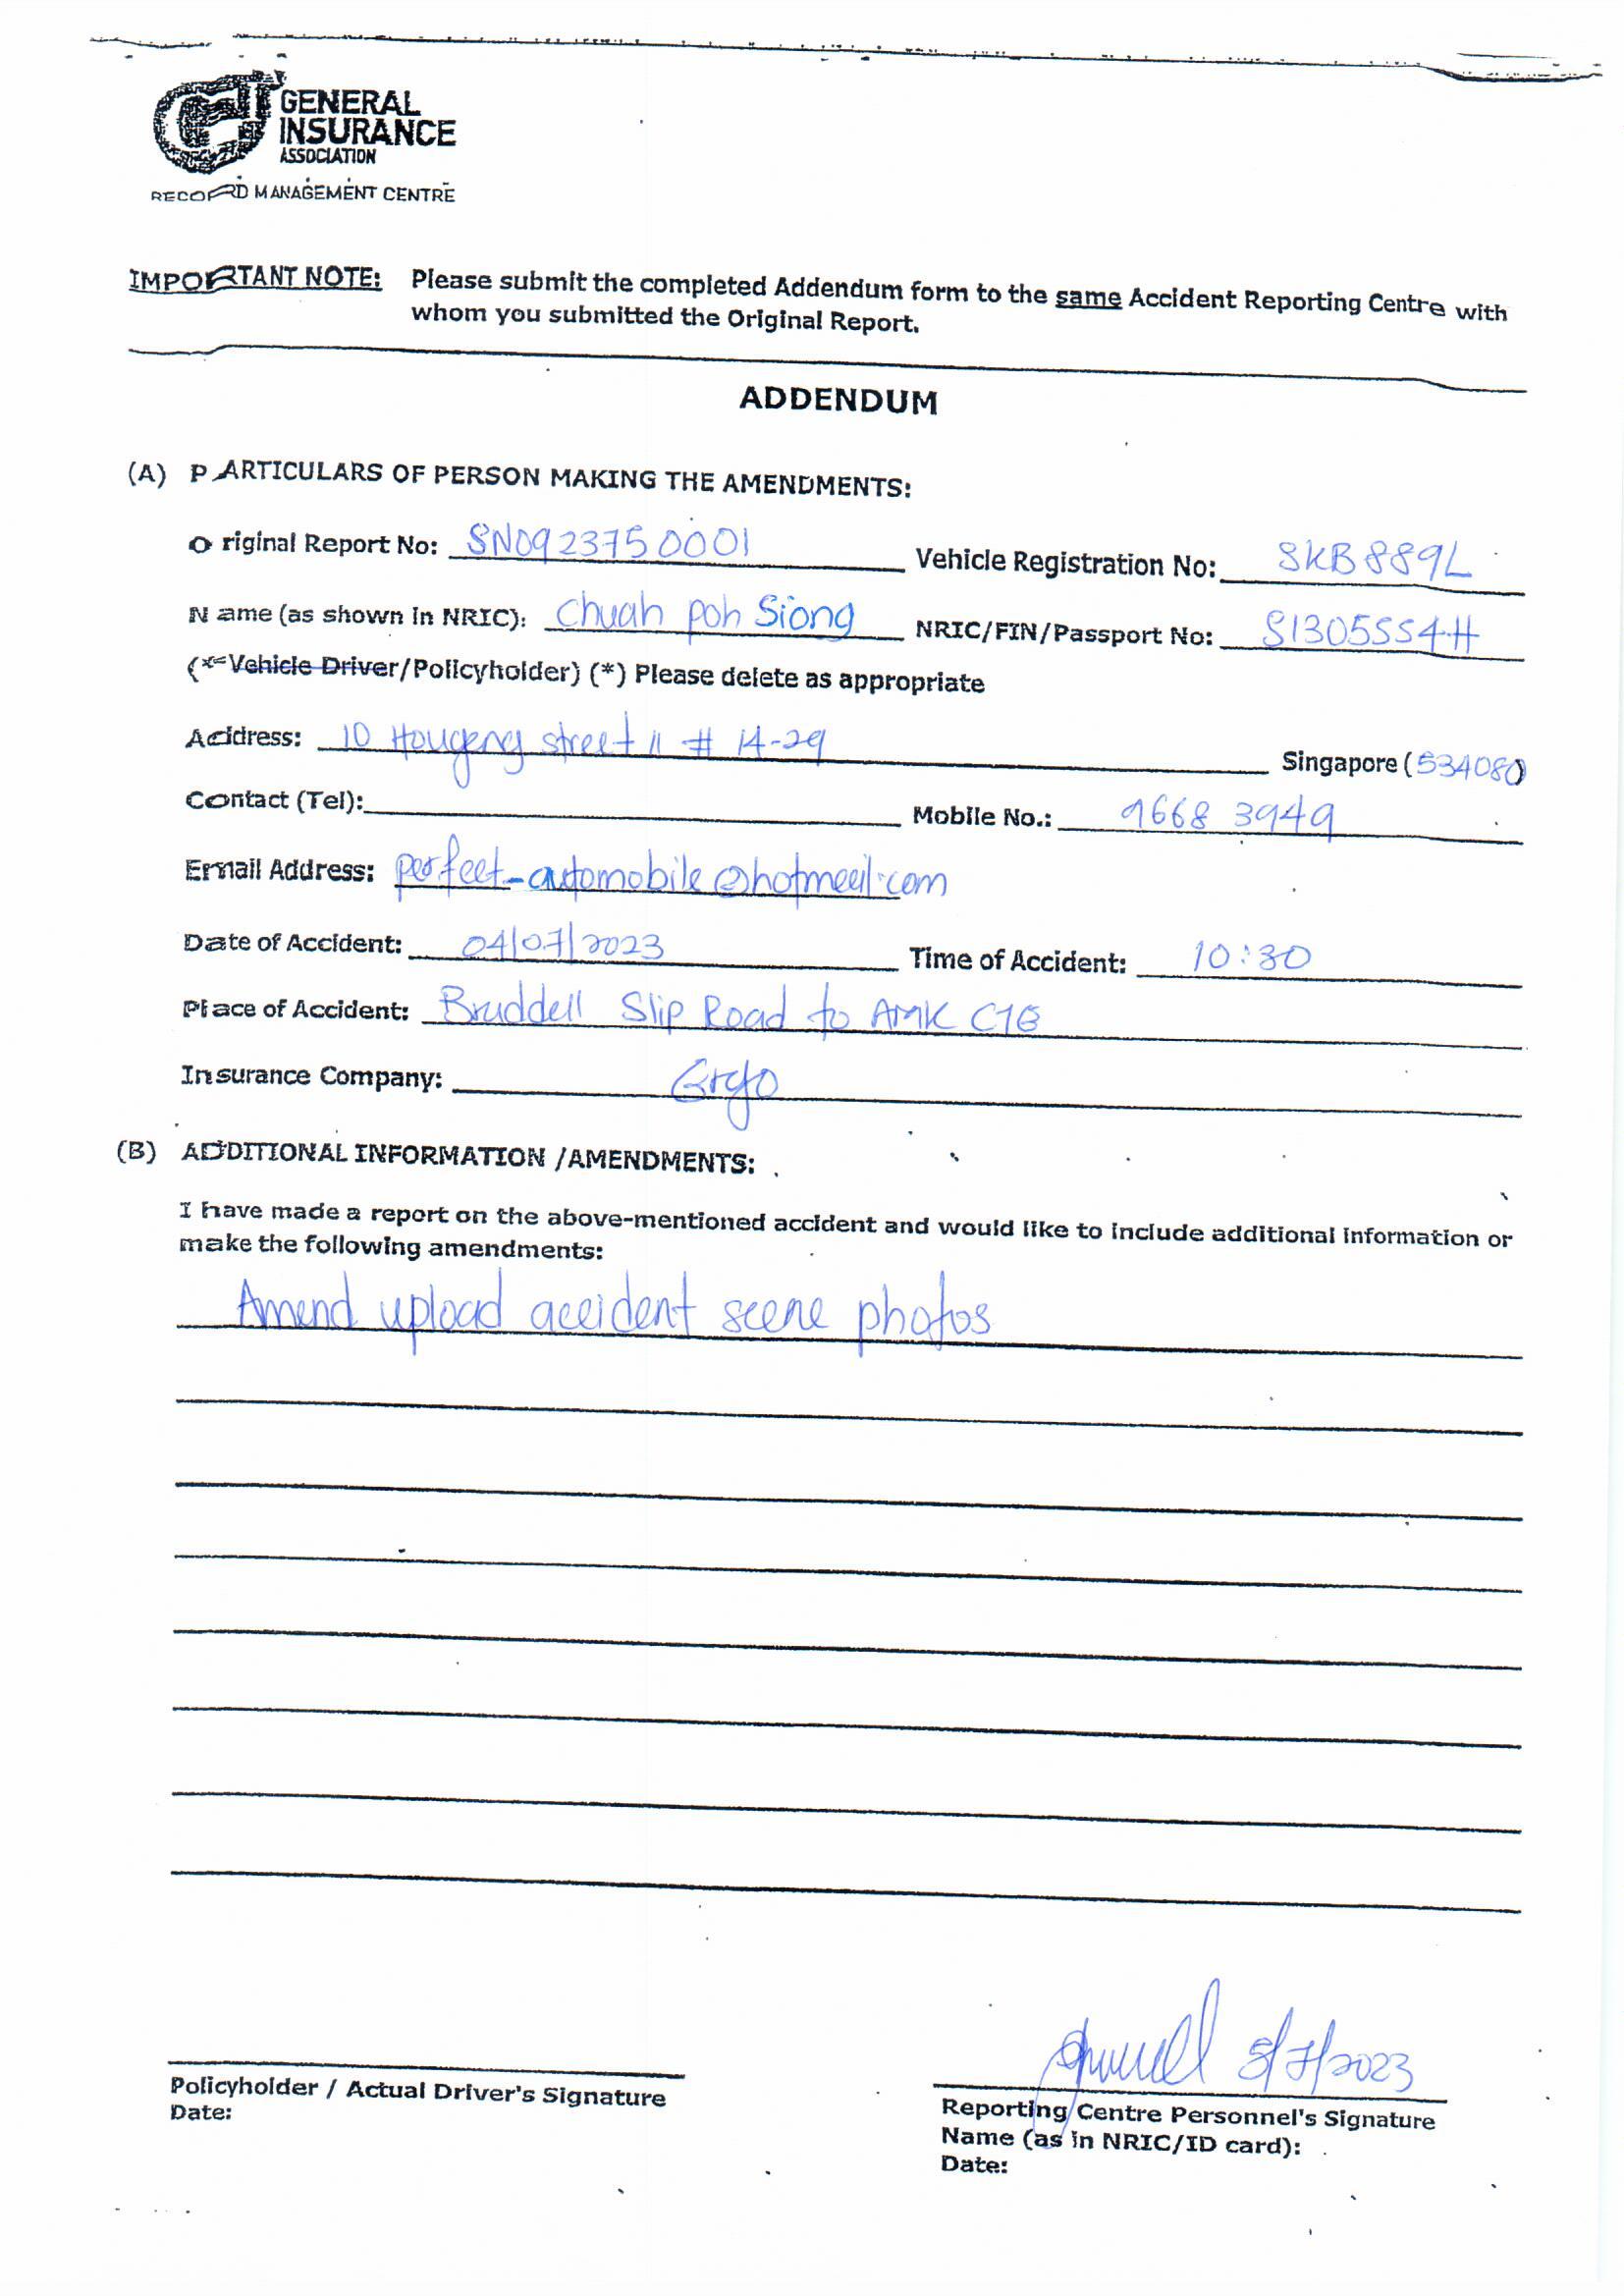 GENERAL
INSURANCE
ASSOCIATION
RECORD MANAGEMENT CENTRE
IMPORTANT NOTE: Please submit the completed Addendum form to the same Accident Reporting Centre with
whom you submitted the Original Report.
ADDENDUM
(A) PARTICULARS OF PERSON MAKING THE AMENDMENTS:
Original Report No: SN0923750001 Vehicle Registration No: SKB889L
Name (as shown in NRIC): Chuah Poh Siong NRIC/FIN/Passport No: S1305554H
(*Vehicle Driver/Policyholder) (*) Please delete as appropriate
Address: 10 Hougang street 11 # 14-29 Singapore (534080)
Contact (Tel): Mobile No.: 9668 3949
Email Address: perfect_automobile@hotmail.com
Date of Accident: 04/07/2023 Time of Accident: 10:30
Place of Accident: Braddell Slip Road to AMK CTE
Insurance Company: Ergo
(B) ADDITIONAL INFORMATION /AMENDMENTS:
I have made a report on the above-mentioned accident and would like to include additional information or
make the following amendments:
Amend upload accident scene photos
8/7/2023
Policyholder / Actual Driver's Signature
Date:
Reporting Centre Personnel's Signature
Name (as in NRIC/ID card):
Date: